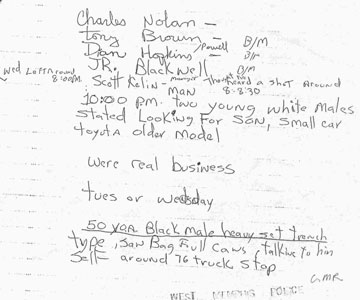 Charles Nolan -
Tony Brown - B/M
Dan Hopkins / Powell = B/M
JR. Blackwell B/M
Wed Left around 8:00pm.
Scott Kelin - manager thought he heard a shot around
MAN 8-8:30
10:00 pm. two young white males
stated Looking For SON, small car
toyota older model
Were real business
tues or wedsday
50 year Black male heavy set trench
type, San Bag Full cans, talking to him
Self around 76 truck stop
GMR
WEST MEMPHIS POLICE